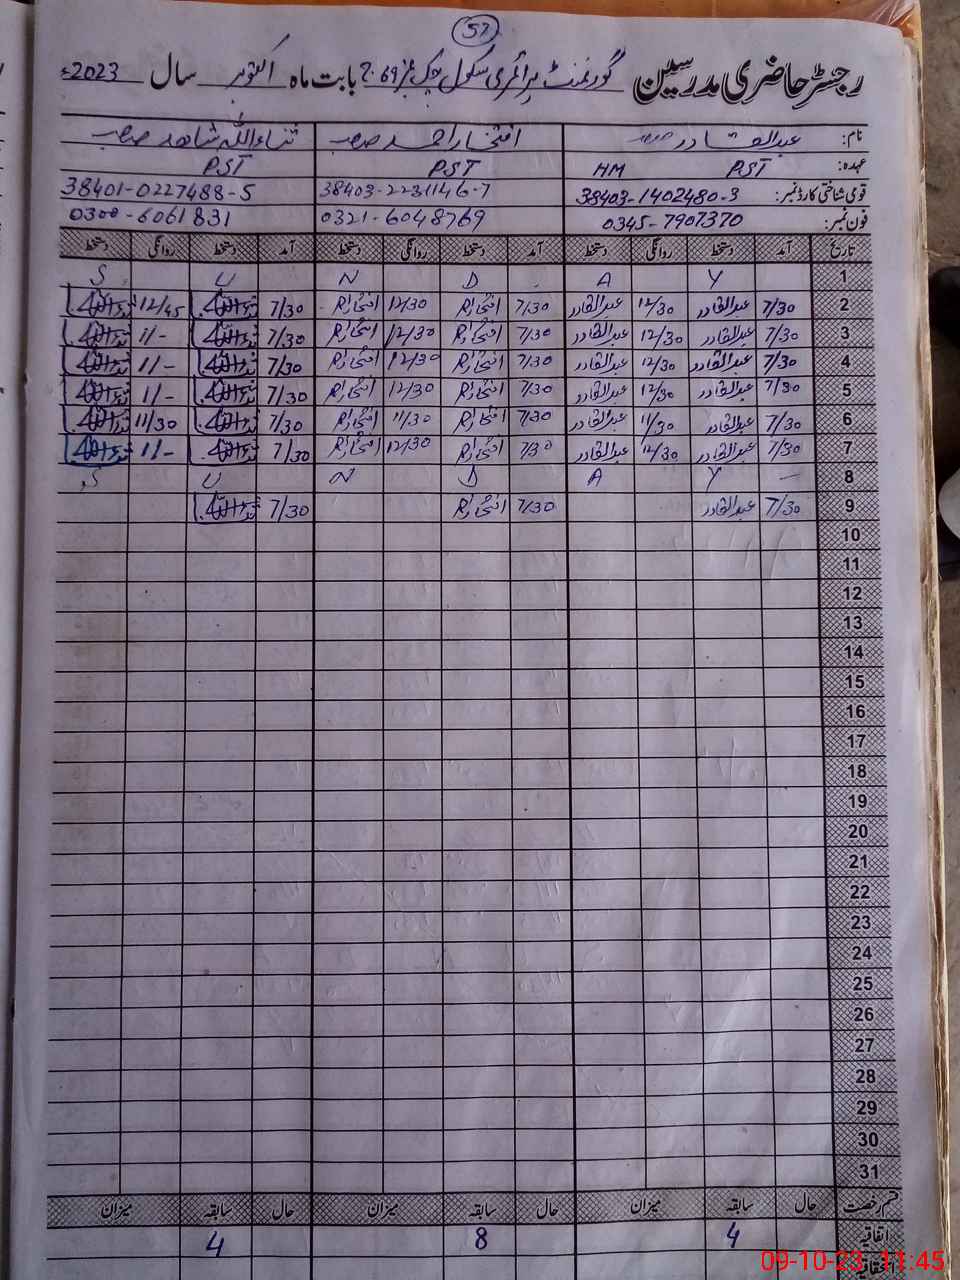 57
رجسٹر حاضری مدرسین گورنمنٹ پرائمری سکول چک نمبر 69 بابت ماہ اکتوبر سال 2023ء
نام: عبدالقادر صاحب افتخار احمد صاحب ثناءاللہ شاھد صاحب
عہدہ: PST HM PST PST
قومی شناختی کارڈ نمبر: 38403-1402480-3 38403-2231146-7 38401-0227488-5
فون نمبر: 0345-7907370 0321-6048769 0300-6061831
تاریخ آمد دستخط روانگی دستخط آمد دستخط روانگی دستخط آمد دستخط روانگی دستخط
1 S U N D A Y
2 7/30 عبدالقادر 12/30 عبدالقادر 7/30 افتخار 12/30 افتخار 7/30 12/45
3 7/30 عبدالقادر 12/30 عبدالقادر 7/30 افتخار 12/30 افتخار 7/30 1/-
4 7/30 عبدالقادر 12/30 عبدالقادر 7/30 افتخار 12/30 افتخار 7/30 1/-
5 7/30 عبدالقادر 12/30 عبدالقادر 7/30 افتخار 12/30 افتخار 7/30 1/-
6 7/30 عبدالقادر 11/30 عبدالقادر 7/30 افتخار 11/30 افتخار 7/30 11/30
7 7/30 عبدالقادر 12/30 عبدالقادر 7/30 افتخار 12/30 افتخار 7/30 1/-
8 S U N D A Y
9 7/30 عبدالقادر 7/30 افتخار 7/30
10
11
12
13
14
15
16
17
18
19
20
21
22
23
24
25
26
27
28
29
30
31
قسم رخصت حال سابقہ میزان حال سابقہ میزان حال سابقہ میزان
اتفاقیہ 4 8 4
09-10-23 11:45